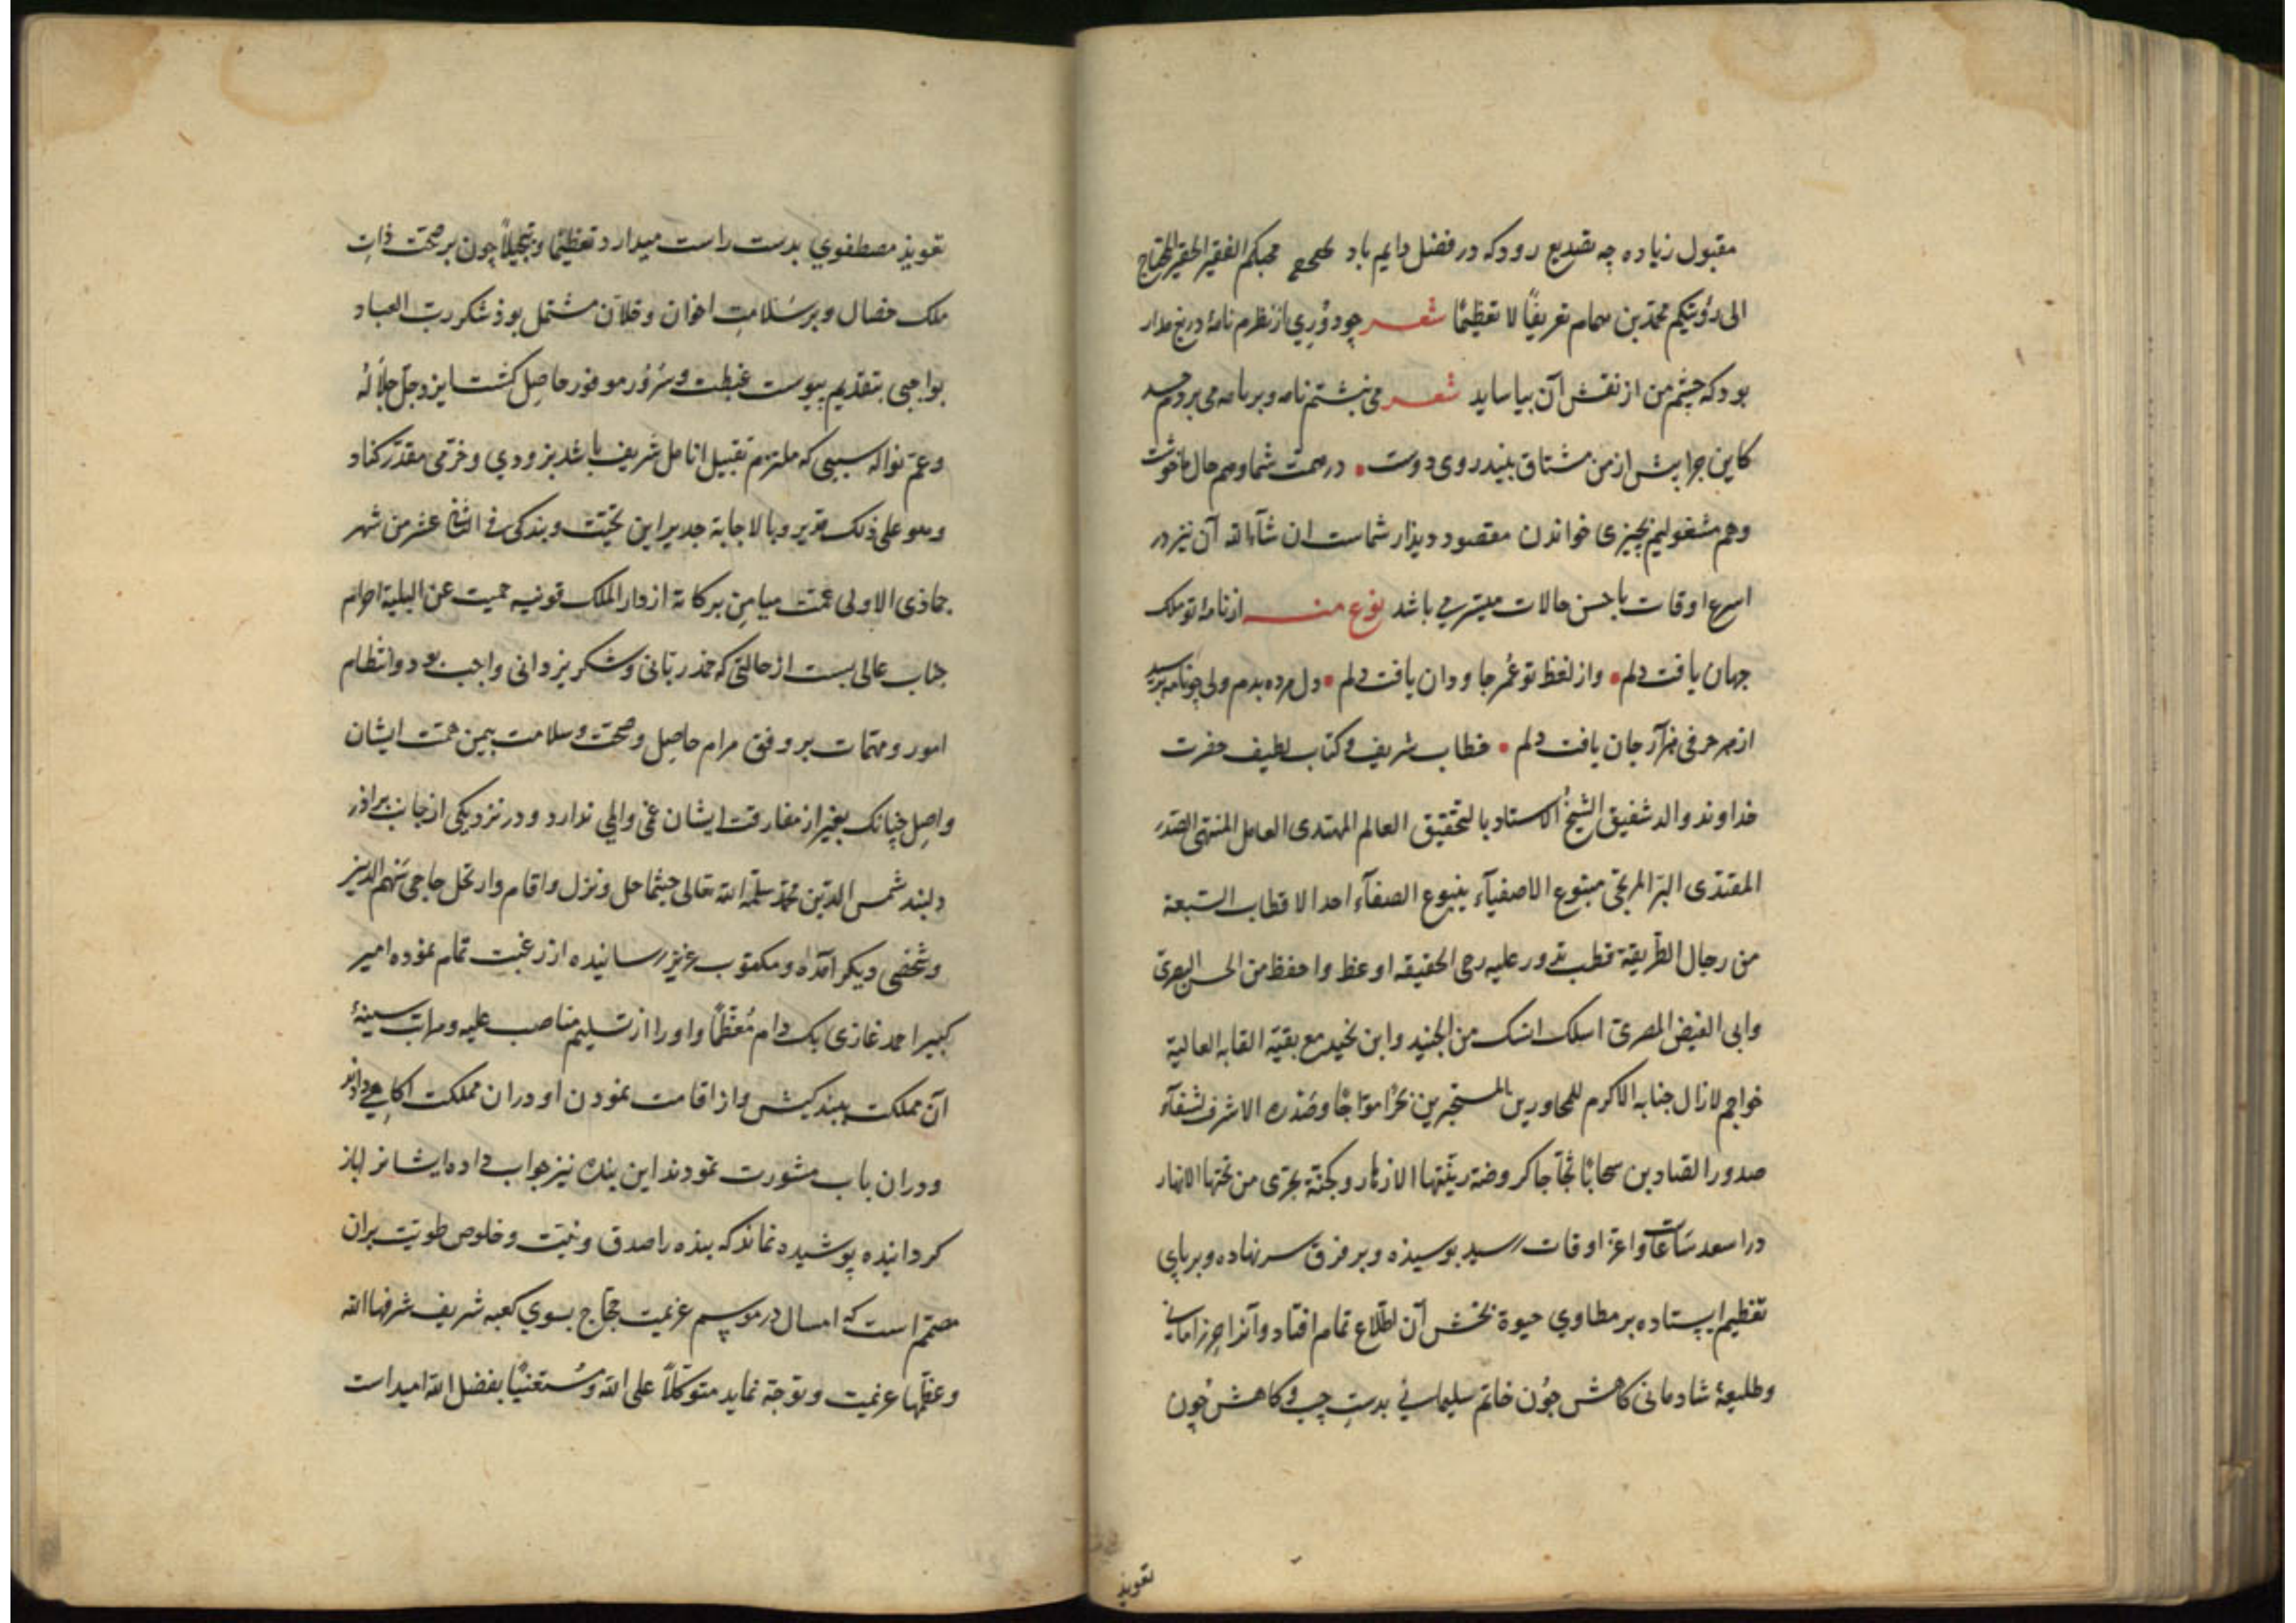 مقبول زیاده چه تصدیع رود که در فضل دایم باد محبکم الفقیر الحقیر المحتاج
الی رؤیتکم محمد بن همام تعریفًا لا تعظیمًا شعر چو دوری از نظرم نامهٔ دریغ مدار
بود که چشم من از نقش آن بیاساید شعر می نبشتم نامه و بر نامه می بردم حسد
کاین چرا پیش از من مشتاق بیند روی دوست • در صحت شما و هم حال ما خوشت
وهم مشغولیم بچیزی خواندن مقصود دیدار شماست ان شآء الله آن نیز در
اسرع اوقات باحسن حالات میسر می باشد نوع منه از نامهٔ تو ملک
جهان یافت دلم • واز لفظ تو عُمر جاودان یافت دلم • دل مرده بدم ولی چو نامه برسید
از هر حرفی هزار جان یافت دلم • خطاب شریف و کتاب لطیف حضرت
خداوند والد شفیق الشیخ الاستاد بالتحقیق العالم المهتدی العامل المنتهی الصدر
المقتدی البر المرتجی متبوع الاصفیآء ینبوع الصفآء احد الاقطاب السّبعة
من رجال الطریقة قطب تدور علیه رحی الحقیقه اوعظ واحفظ من الحسن البصری
وابی الفیض المصری اسلک انسک من الجنید وابن نجید مع بقیّة القابه العالیة
خواجم لازال جنابه الاکرم للمجاورین المستجیرین بحرًا موّاجًا وصَدره الاشرف لشفآء
صدور الصادین سحابًا ثجّاجا کروضة زینتها الازهار وکجنّة تجری من تحتها الانهار
در اسعد ساعات واعزّ اوقات رسید بوسیذه و بر فرق سر نهاده و بر پای
تعظیم ایستاده بر مطاوی حیوة بخش آن اطّلاع تمام افتاد وآنرا حرز امانی
وطلیعهٔ شادمانی کاهش چون خاتم سلیمانی بدست چپ و کاهش چون
تعویذ
تعویذ مصطفوی بدست راست میدارد تعظیمًا وتبجیلاً چون بر صحّت ذات
ملک خصال و بر سَلامت اخوان و خلاّن مشتمل بوذ شکر ربّ العباد
بواجبی بتقدیم پیوست غبطت وسُرور موفور حاصل کشت ایزد جلّ جلاله
وعمّ نواله سببی که ملتزم تقبیل انامل شریف باشد بزودی و خرّمی مقدّر کناد
وهو علی ذلک قدیر وبالاجابة جدیر این تحیّت وبندکی فی الثانی عشر من شهر
جماذی الاولی عمّت میامن برکاته از دار الملک قونیه حمیت عن البلیة احرام
جناب عالی بست از حالتی که حمد ربّانی و شکر یزدانی واجب بود و انتظام
امور و مهمّات بر وفق مرام حاصل و صحّت وسلامت بیمن همّت ایشان
واصل چنانک بغیر از مفارقت ایشان غمی والمی ندارد و در نزدیکی از جانب براذر
دلبند شمس الدّین محمّد سلّمه الله تعالی حیثما حل ونزل واقام وارتحل حاجی شهم الدین
وشخصی دیکر آمده ومکتوب عزیز رسانیده از رغبت تمام نموده امیر
کبیر احمد غازی بک دام مُعظّمًا واو را از تسلیم مناصب علیه ومراتب سنیهٔ
آن مملکت ببندکیش واز اقامت نمودن او در ان مملکت آکاهی داذند
و دران باب مشورت نمودند این بنده نیز جواب داده ایشانرا باز
کردانیده پوشیده نماند که بنده را صدق ونیّت وخلوص طویّت بران
مصمّم است که امسال در موسم عزیمت حجّاج بسوی کعبه شریف شرفها الله
وعظّمها عزیمت و توجّه نماید متوکّلاً علی الله ومُستعینًا بفضل الله امید است